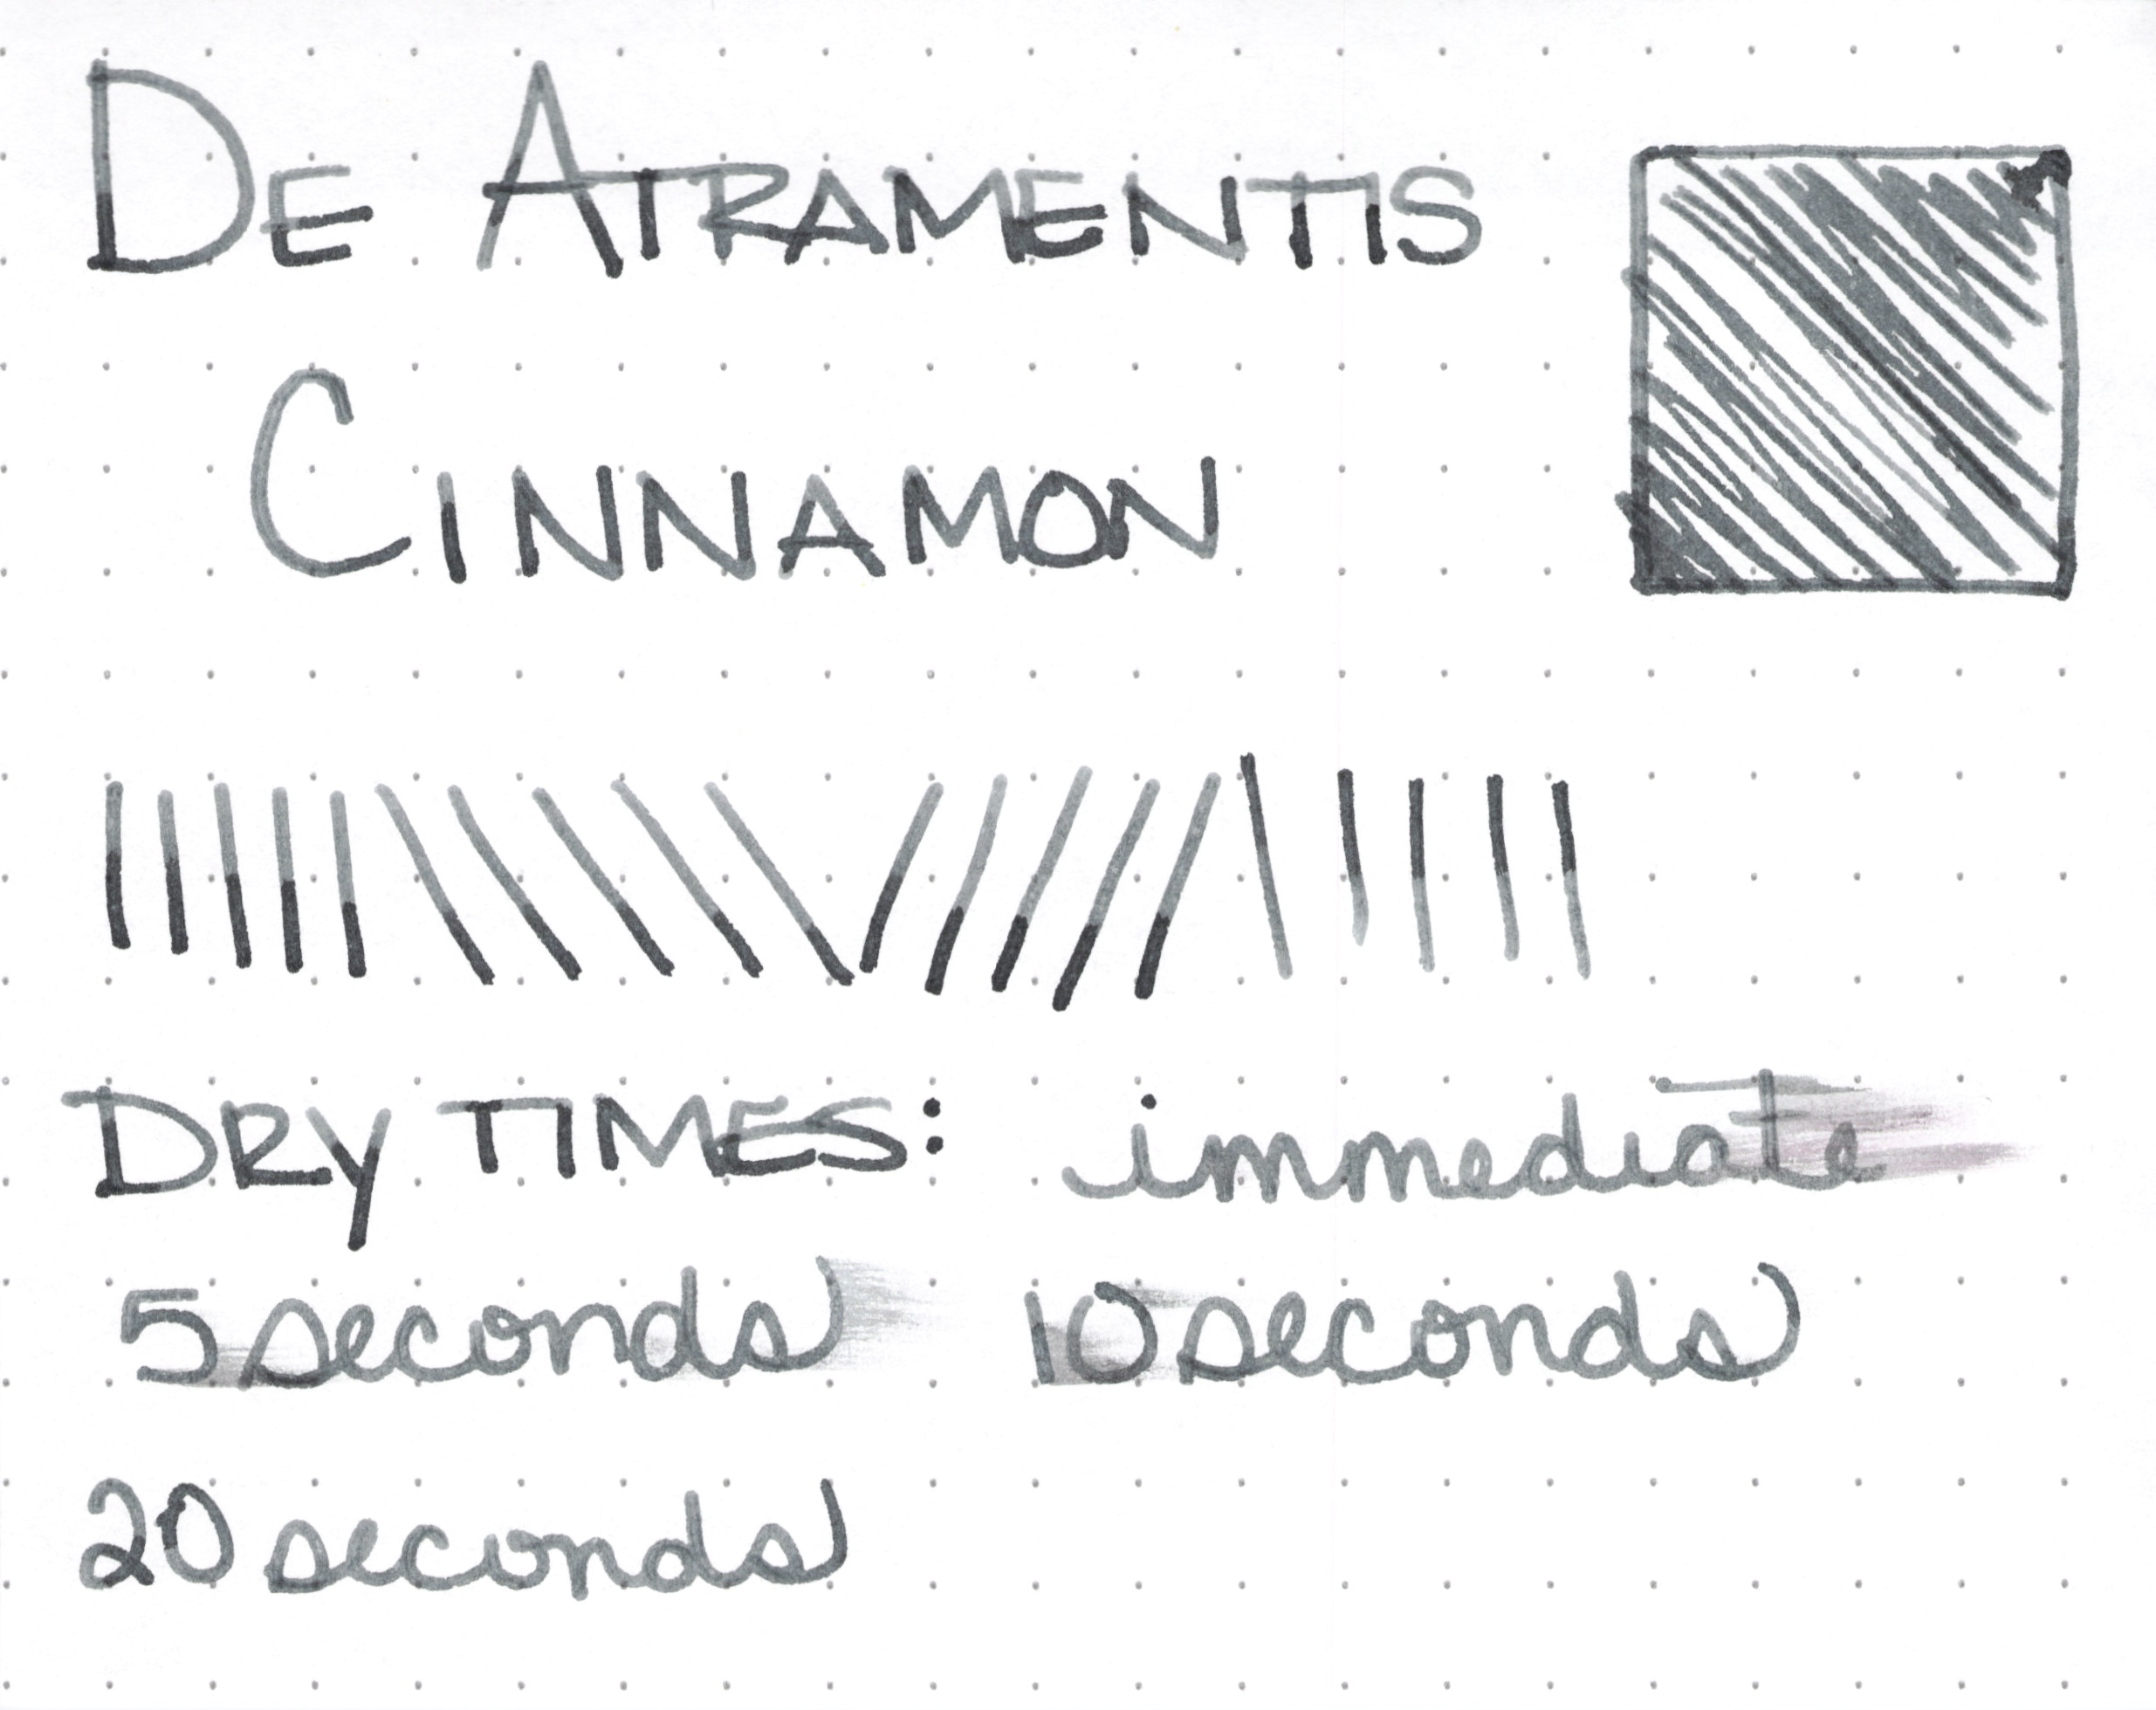 DE ATRAMENTIS
CINNAMON
DRY TIMES: immediate
5 seconds 10 seconds
20 seconds